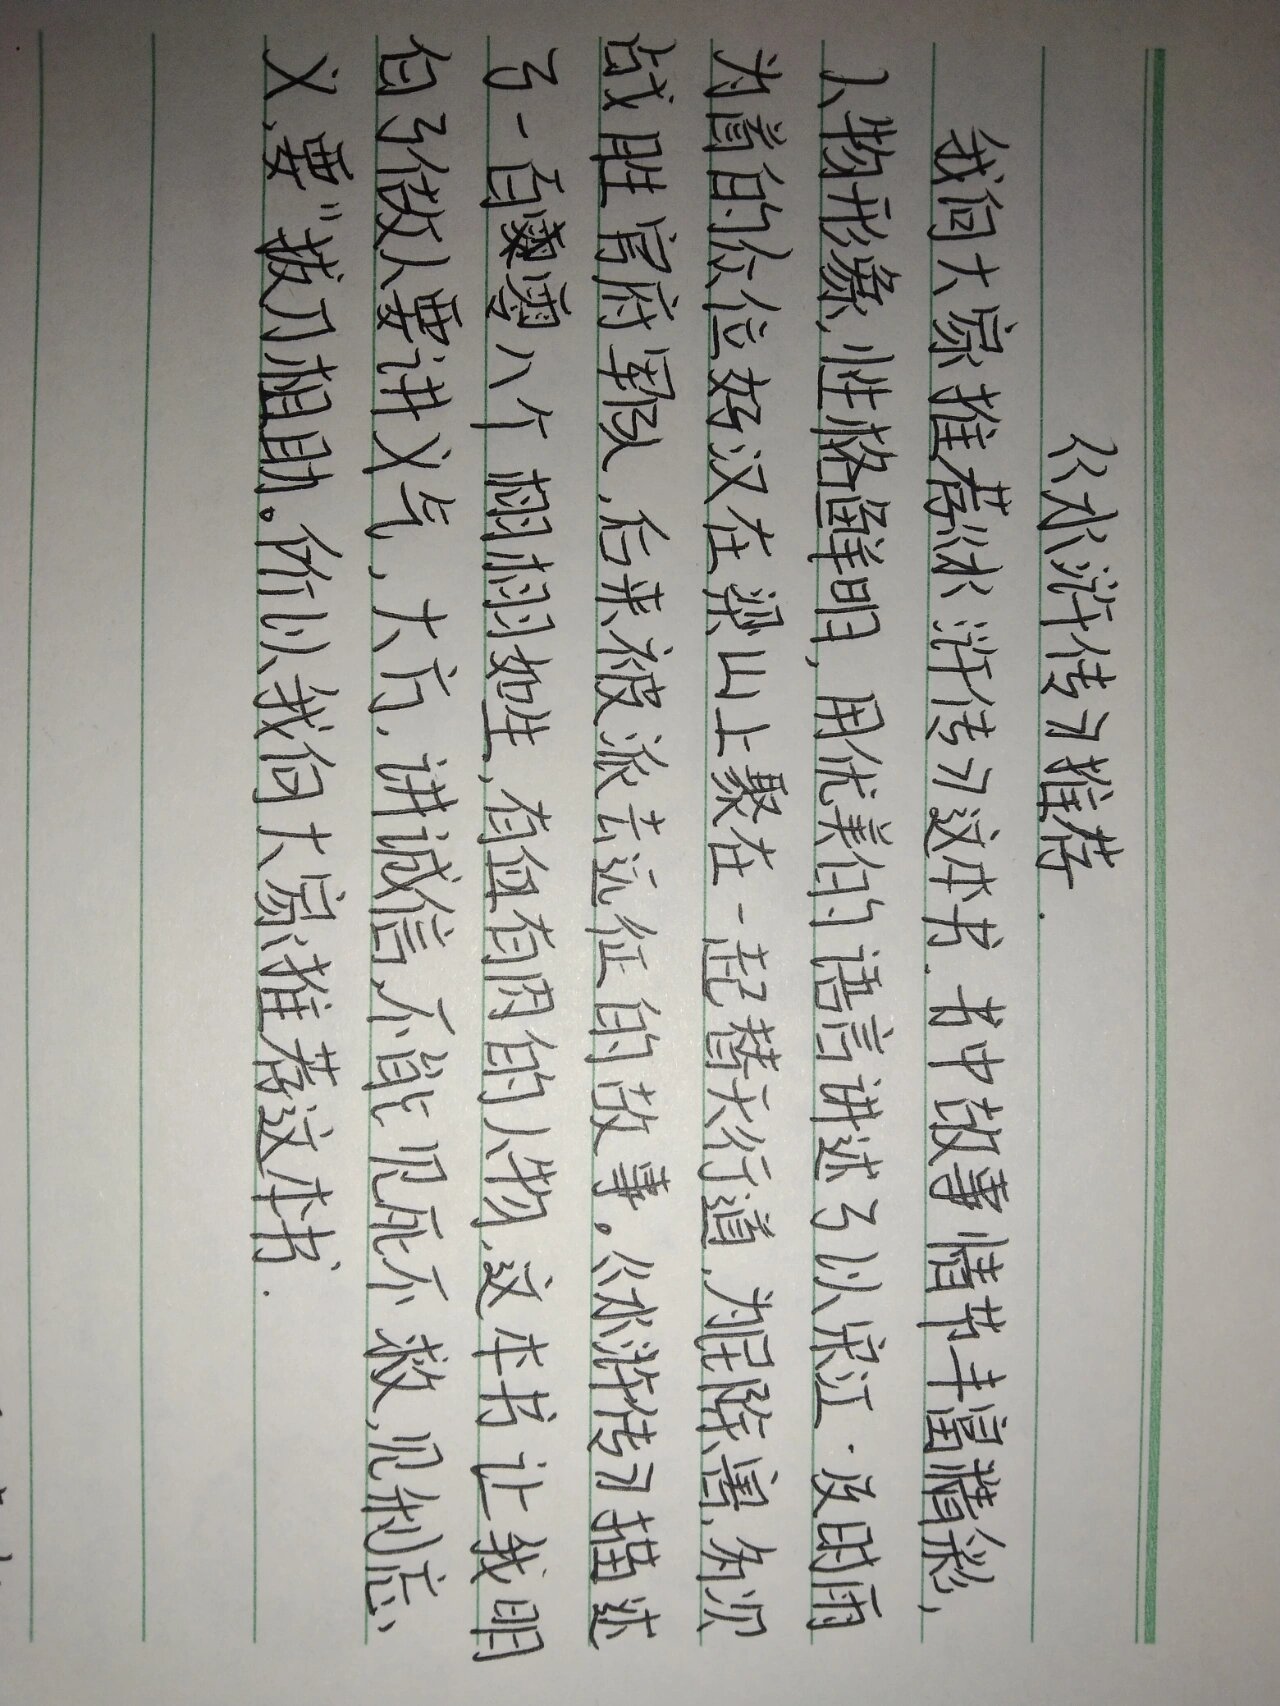 《水浒传》推荐.
我向大家推荐《水浒传》这本书.书中故事情节丰富精彩,
人物形像,性格鲜明,用优美的语言讲述了以宋江·及时雨
为首的众位好汉在梁山上聚在一起替天行道,为民除害,多次
战胜官府军队,后来被派去远征的故事。《水浒传》描述
了一百零八个栩栩如生,有血有肉的人物,这本书让我明
白了做人要讲义气,大方,讲诚信,不能见死不救,见利忘
义,要"拔刀相助。所以我向大家推荐这本书.